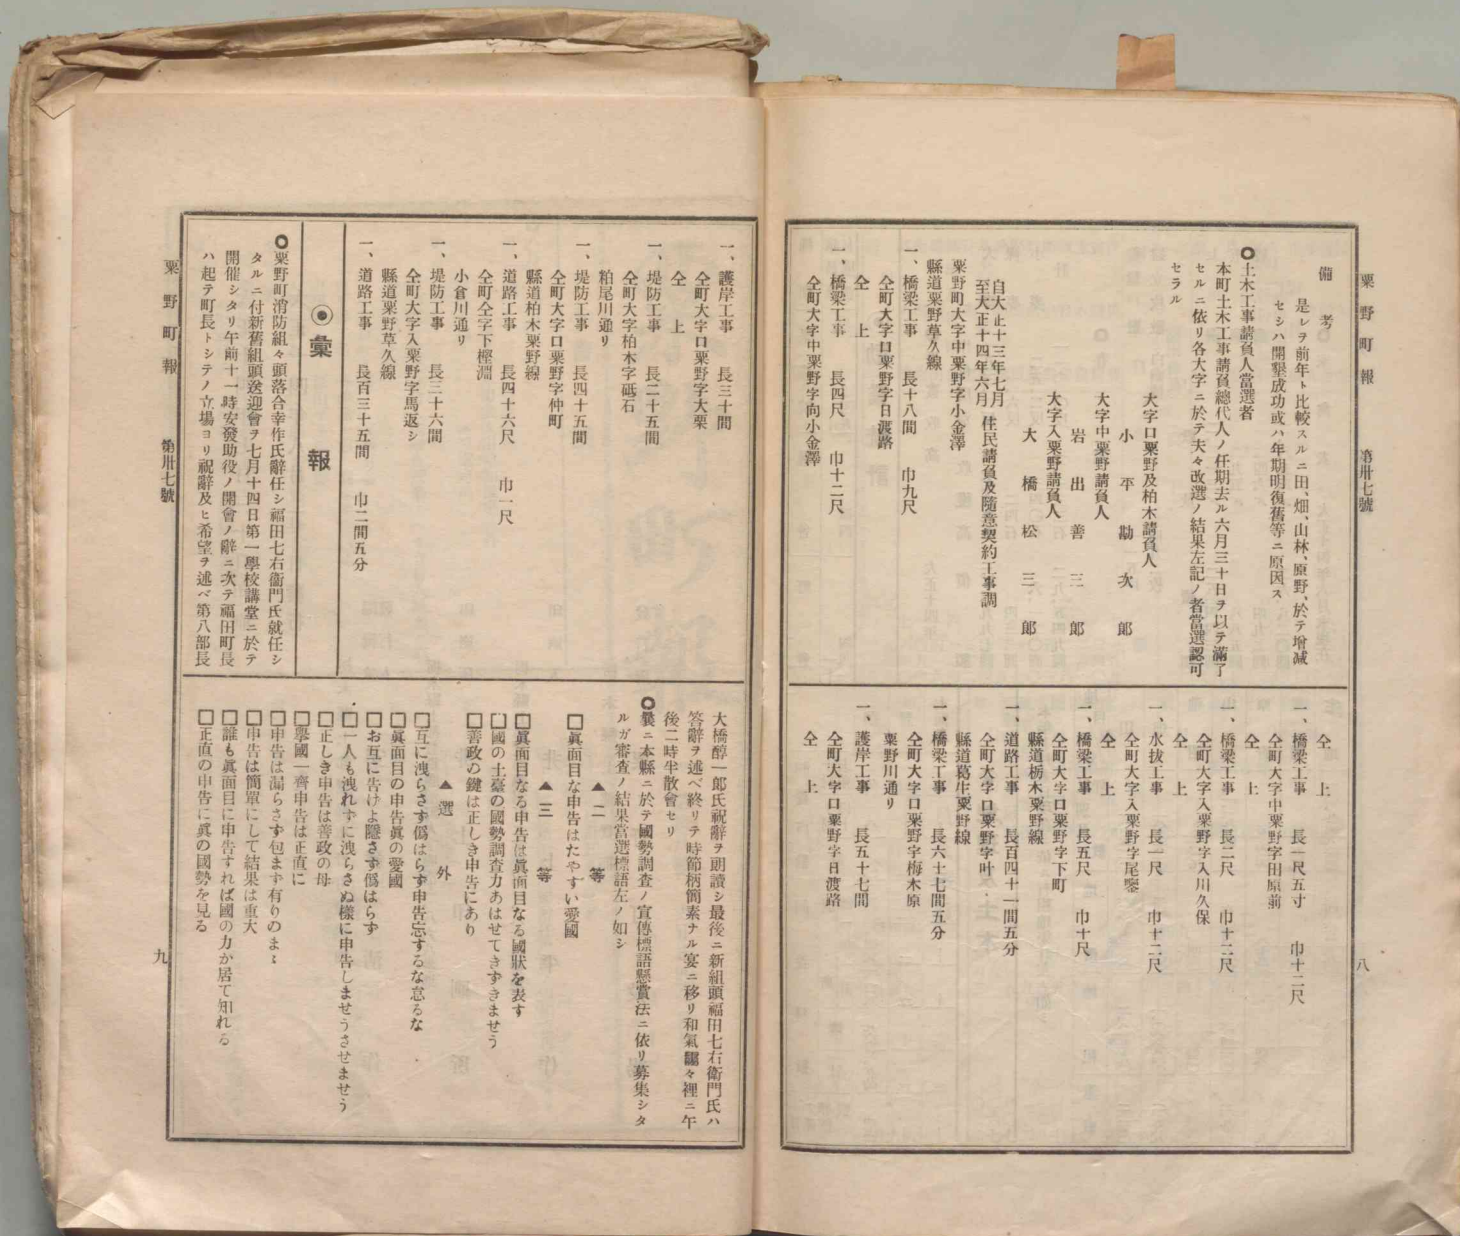 粟野町報　第卅七號
備考
是レヲ前年ト比較スルニ田、畑、山林、原野、於テ增減
セシハ開墾成功或ハ年期明復舊等ニ原因ス
◎土木工事請負人當選者
本町土木工事請負總代人ノ任期去ル六月三十日ヲ以テ滿了
セルニ依リ各大字ニ於テ夫々改選ノ結果左記ノ者當選認可
セラル
大字口粟野及柏木請負人
小平勘次郎
大字中粟野請負人
岩出善三郎
大字入粟野請負人
大橋松三郎
自大正十三年七月
至大正十四年六月
住民請負及隨意契約工事調
粟野町大字中粟野字小金澤
縣道粟野草久線
一、橋梁工事　長十八間　巾九尺
仝町大字口粟野字日渡路
仝上
一、橋梁工事　長四尺　巾十二尺
仝町大字中粟野字向小金澤
仝上
一、橋梁工事　長一尺五寸　巾十二尺
仝町大字中粟野字田原前
仝上
一、橋梁工事　長二尺　巾十二尺
仝町大字入粟野字入川久保
仝上
一、水抜工事　長一尺　巾十二尺
仝町大字入粟野字尾鑿
仝上
一、橋梁工事　長五尺　巾十尺
仝町大字口粟野字下町
縣道栃木粟野線
一、道路工事　長百四十一間五分
仝町大字口粟野字叶
縣道葛生粟野線
一、橋梁工事　長六十七間五分
仝町大字口粟野字梅木原
粟野川通リ
一、護岸工事　長五十七間
仝町大字口粟野字日渡路
仝上
八
一、護岸工事　長三十間
仝町大字口粟野字大栗
仝上
一、堤防工事　長二十五間
仝町大字柏木字砥石
粕尾川通リ
一、堤防工事　長四十五間
仝町大字口粟野字仲町
縣道柏木粟野線
一、道路工事　長四十六尺　巾一尺
仝町仝字下樫淵
小倉川通リ
一、堤防工事　長三十六間
仝町大字入粟野字馬返シ
縣道粟野草久線
一、道路工事　長百三十五間　巾二間五分
◉彙報
◎粟野町消防組々頭落合幸作氏辭任シ福田七右衞門氏就任シ
タルニ付新舊組頭送迎會ヲ七月十四日第一學校講堂ニ於テ
開催シタリ午前十一時安發助役ノ開會ノ辭ニ次テ福田町長
ハ起テ町長トシテノ立場ヨリ祝辭及ヒ希望ヲ述ベ第八部長
大橋醇一郎氏祝辭ヲ朗讀シ最後ニ新組頭福田七右衛門氏ハ
答辭ヲ述ベ終リテ時節柄簡素ナル宴ニ移リ和氣靄々裡ニ午
後二時半散會セリ
◎曩ニ本縣ニ於テ國勢調査ノ宣傳標語懸賞法ニ依リ募集シタ
ルガ審査ノ結果當選標語左ノ如シ
▲二等
□眞面目な申告はたやすい愛國
▲三等
□眞面目なる申告は眞面目なる國狀を表す
□國の土臺の國勢調査力あはせてきずきませう
□善政の鍵は正しき申告にあり
▲選外
□互に洩らさず僞はらず申告忘するな怠るな
□眞面目の申告眞の愛國
□お互に告けよ隱さず僞はらず
□一人も洩れずに洩らさぬ樣に申告しませうさせませう
□正しき申告は善政の母
□擧國一齊申告は正直に
□申告は漏らさず包まず有りのまゝ
□申告は簡單にして結果は重大
□誰も眞面目に申告すれば國の力か居て知れる
□正直の申告に眞の國勢を見る
粟野町報　第卅七號
九